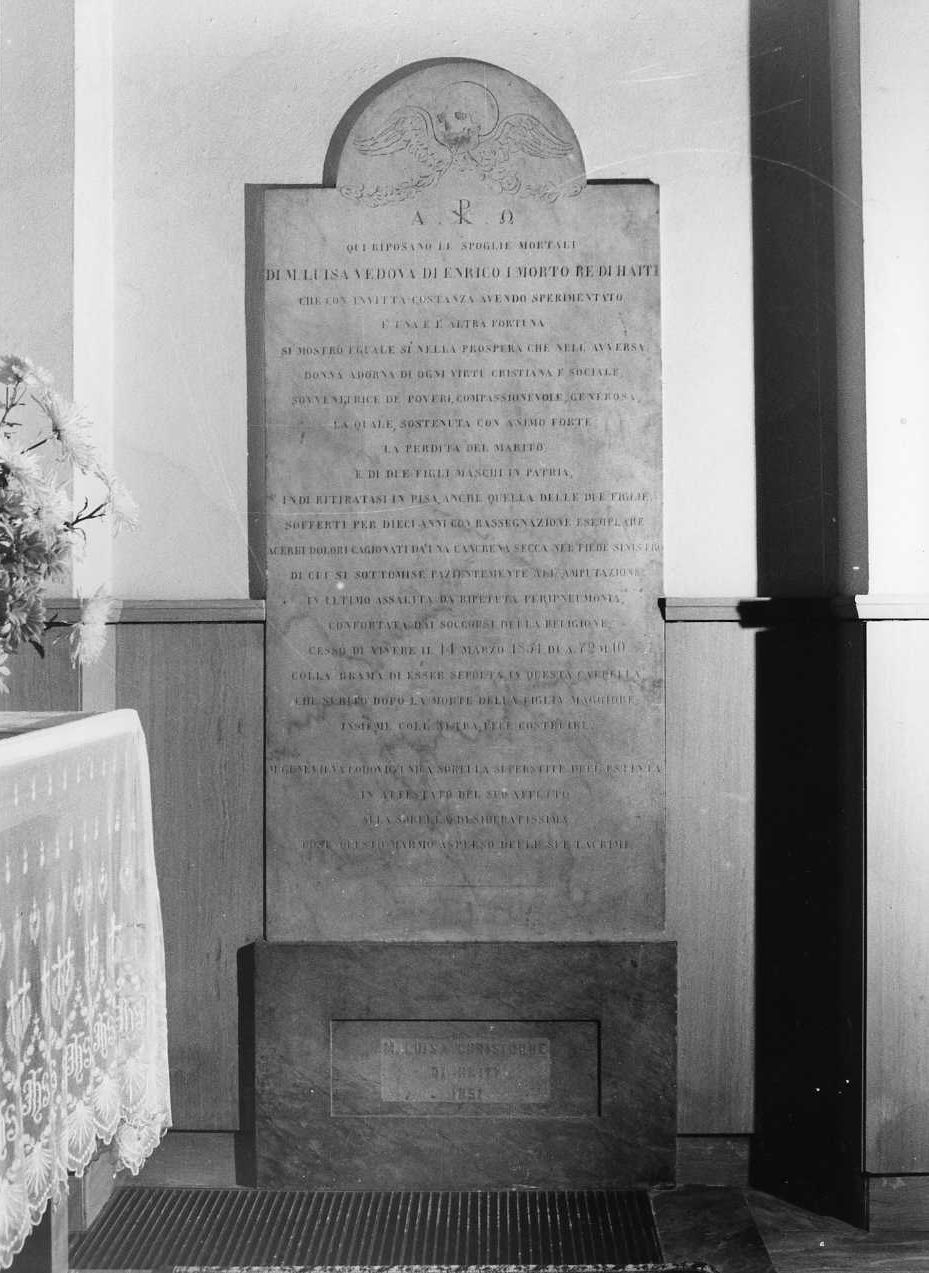 A . ☧ . Ω
QUI RIPOSANO LE SPOGLIE MORTALI
DI M. LUISA VEDOVA DI ENRICO I MORTO RE DI HAITI
CHE CON INVITTA COSTANZA AVENDO SPERIMENTATO
L' UNA E L' ALTRA FORTUNA
SI MOSTRÒ EGUALE SÌ NELLA PROSPERA CHE NELL' AVVERSA
DONNA ADORNA DI OGNI VIRTÙ CRISTIANA E SOCIALE,
SOVVENITRICE DE' POVERI, COMPASSIONEVOLE, GENEROSA,
LA QUALE, SOSTENUTA CON ANIMO FORTE
LA PERDITA DEL MARITO
E DI DUE FIGLI MASCHI IN PATRIA,
INDI RITIRATASI IN PISA ANCHE QUELLA DELLE DUE FIGLIE,
SOFFERTI PER DIECI ANNI CON RASSEGNAZIONE ESEMPLARE
ACERBI DOLORI CAGIONATI DA UNA CANCRENA SECCA NEL PIEDE SINISTRO
DI CUI SI SOTTOMISE PAZIENTEMENTE ALL' AMPUTAZIONE
IN ULTIMO ASSALITA DA RIPETUTA PERIPNEUMONIA,
CONFORTATA DAI SOCCORSI DELLA RELIGIONE,
CESSÒ DI VIVERE IL 14 MARZO 1851 DI A. 72 M. 10
COLLA BRAMA DI ESSER SEPOLTA IN QUESTA CAPPELLA
CHE SUBITO DOPO LA MORTE DELLA FIGLIA MAGGIORE,
INSIEME COLL' ALTRA, FECE COSTRUIRE.
M. GENEVIEVA UNICA SORELLA SUPERSTITE DELL' ESTINTA
IN ATTESTATO DEL SUO AFFETTO
ALLA SORELLA DESIDERATISSIMA
POSE QUESTO MARMO ASPERSO DELLE SUE LACRIME
M. LUISA CHRISTOPHE
DI HAITI
1851